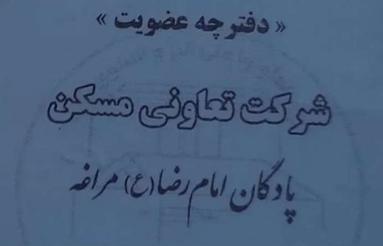 « دفترچه عضویت »
شرکت تعاونی مسکن
پادگان امام رضا (ع) مراغه